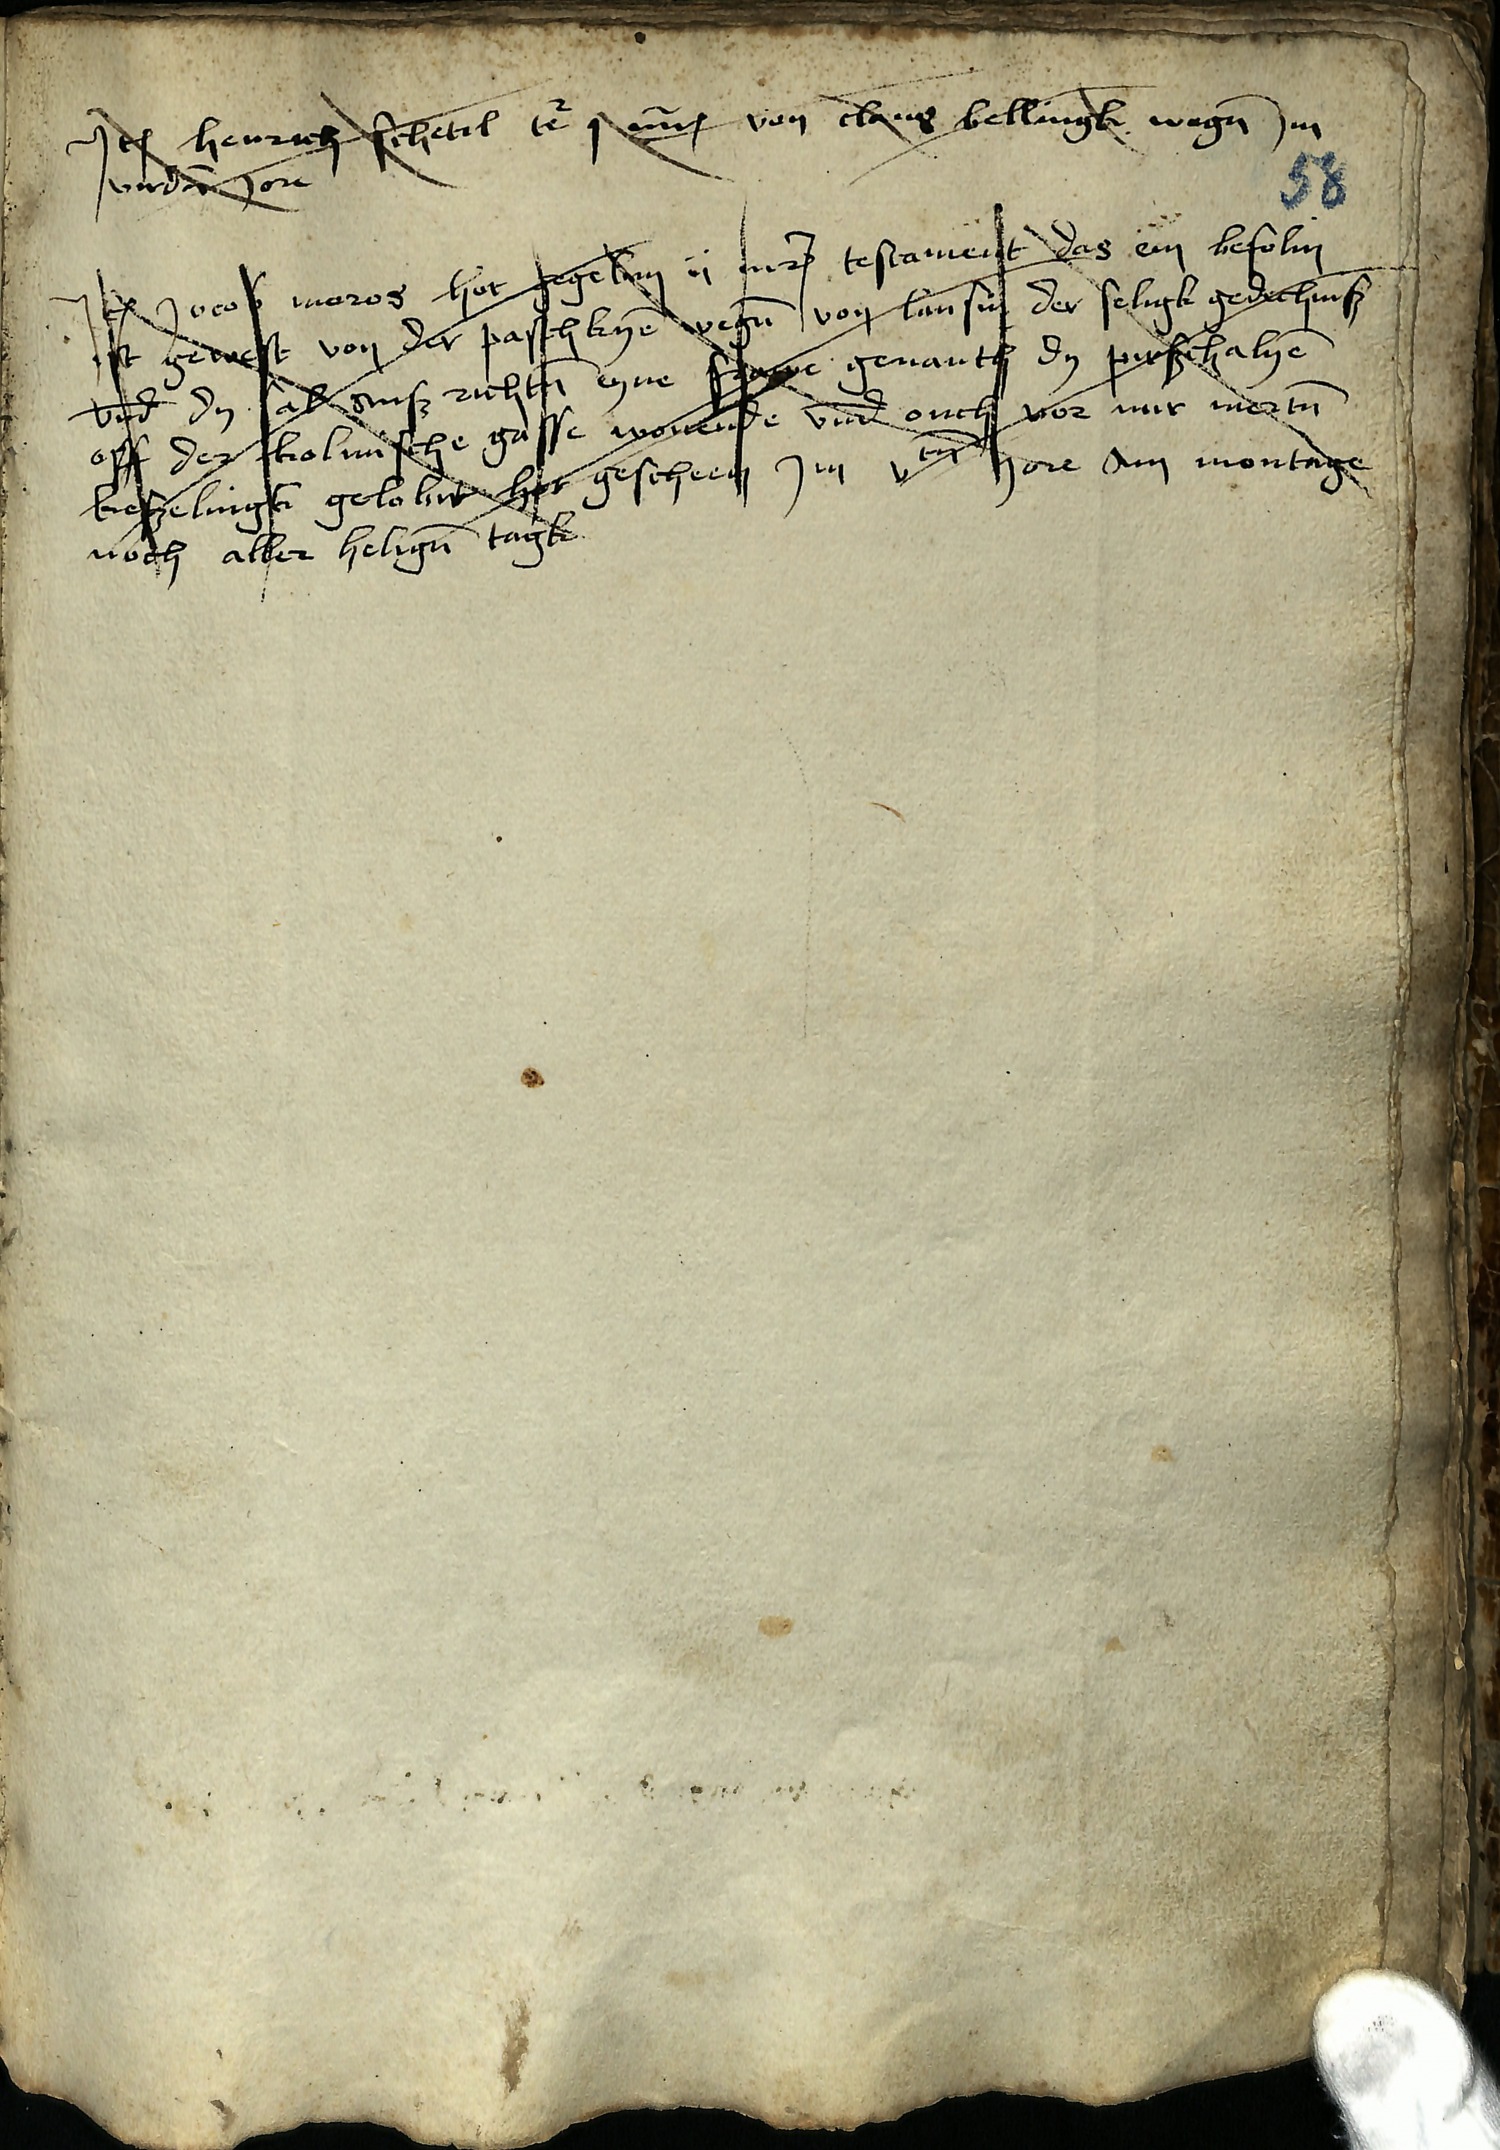 Itē henrich schetil tēr j mrc von claus bellingk wegn̄ Im
virdn̄ Jore
58
Itē Jocoff moros hot gegebin ij mrc testament das em befolin
ist gewest von der paschkyē wegn̄ von lansin der seligk gedechniß
vnd dy sal auß richtn̄ eyne frawe genanth dy pirßchalyē
off der kolmische gasse wonende vnd ouch vor mir mertn̄
keßelingk gelobit hot gescheen Im vten Jore Am montage
noch aller helign̄ tagk